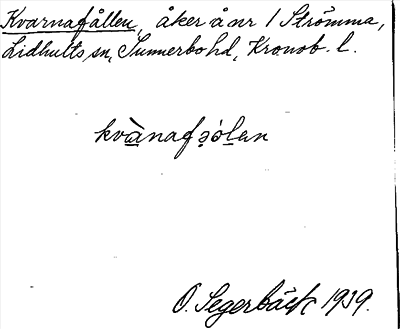 Kvarnafållen, åker å nr 1 Strömma,
Lidhults sn, Sunnerbo hd, Kronob. l.
kvànafʒólen
O. Segerbäck 1939.